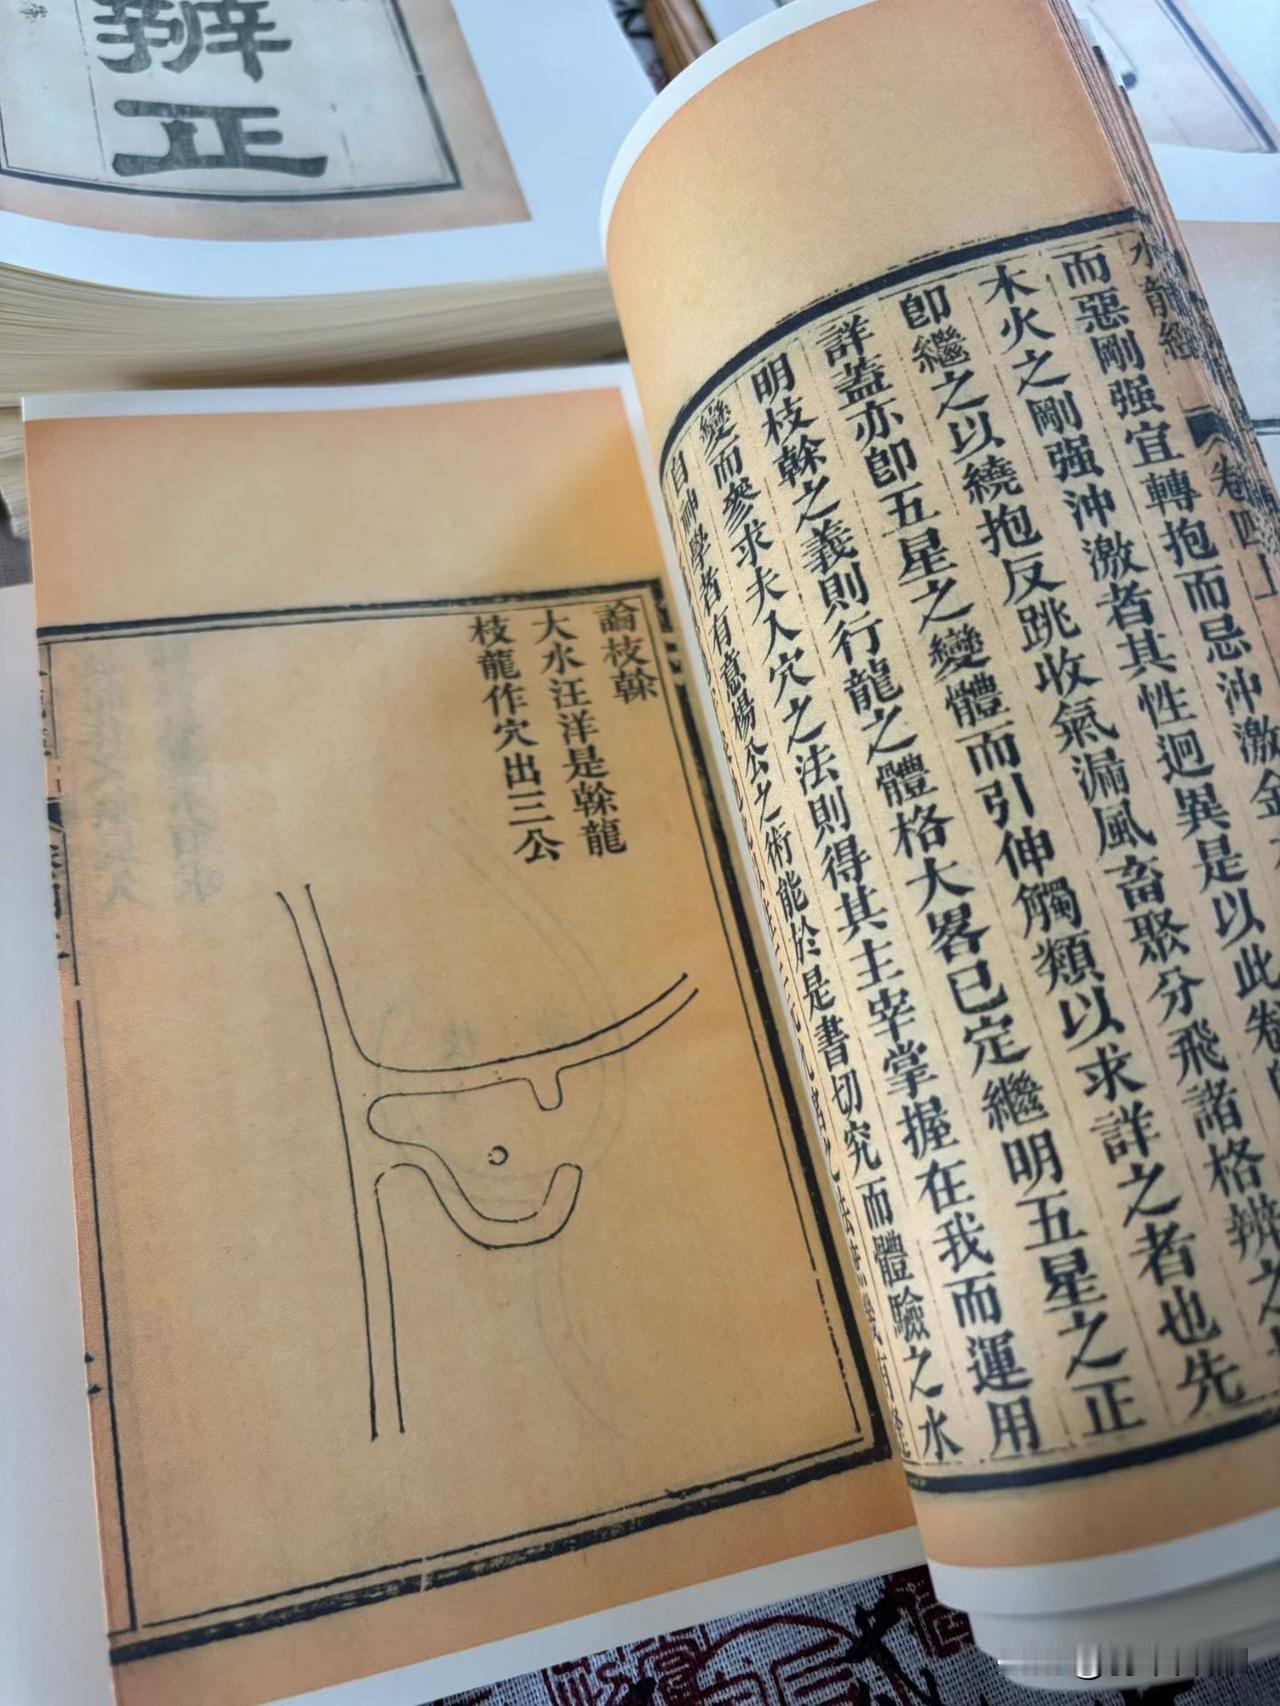 辨
正
水龍經
卷四上
而惡剛强宜轉抱而忌沖激金
木火之剛强沖激者其性迥異是以此卷
卽繼之以繞抱反跳收氣漏風畜聚分飛諸格辨之
詳蓋亦卽五星之變體而引伸觸類以求詳之者也先
明枝榦之義則行龍之體格大畧已定繼明五星之正
變而參求夫入穴之法則得其主宰掌握在我而運用
自神學者有意楊公之術能於是書切究而體驗之水
論枝榦
大水汪洋是榦龍
枝龍作穴出三公